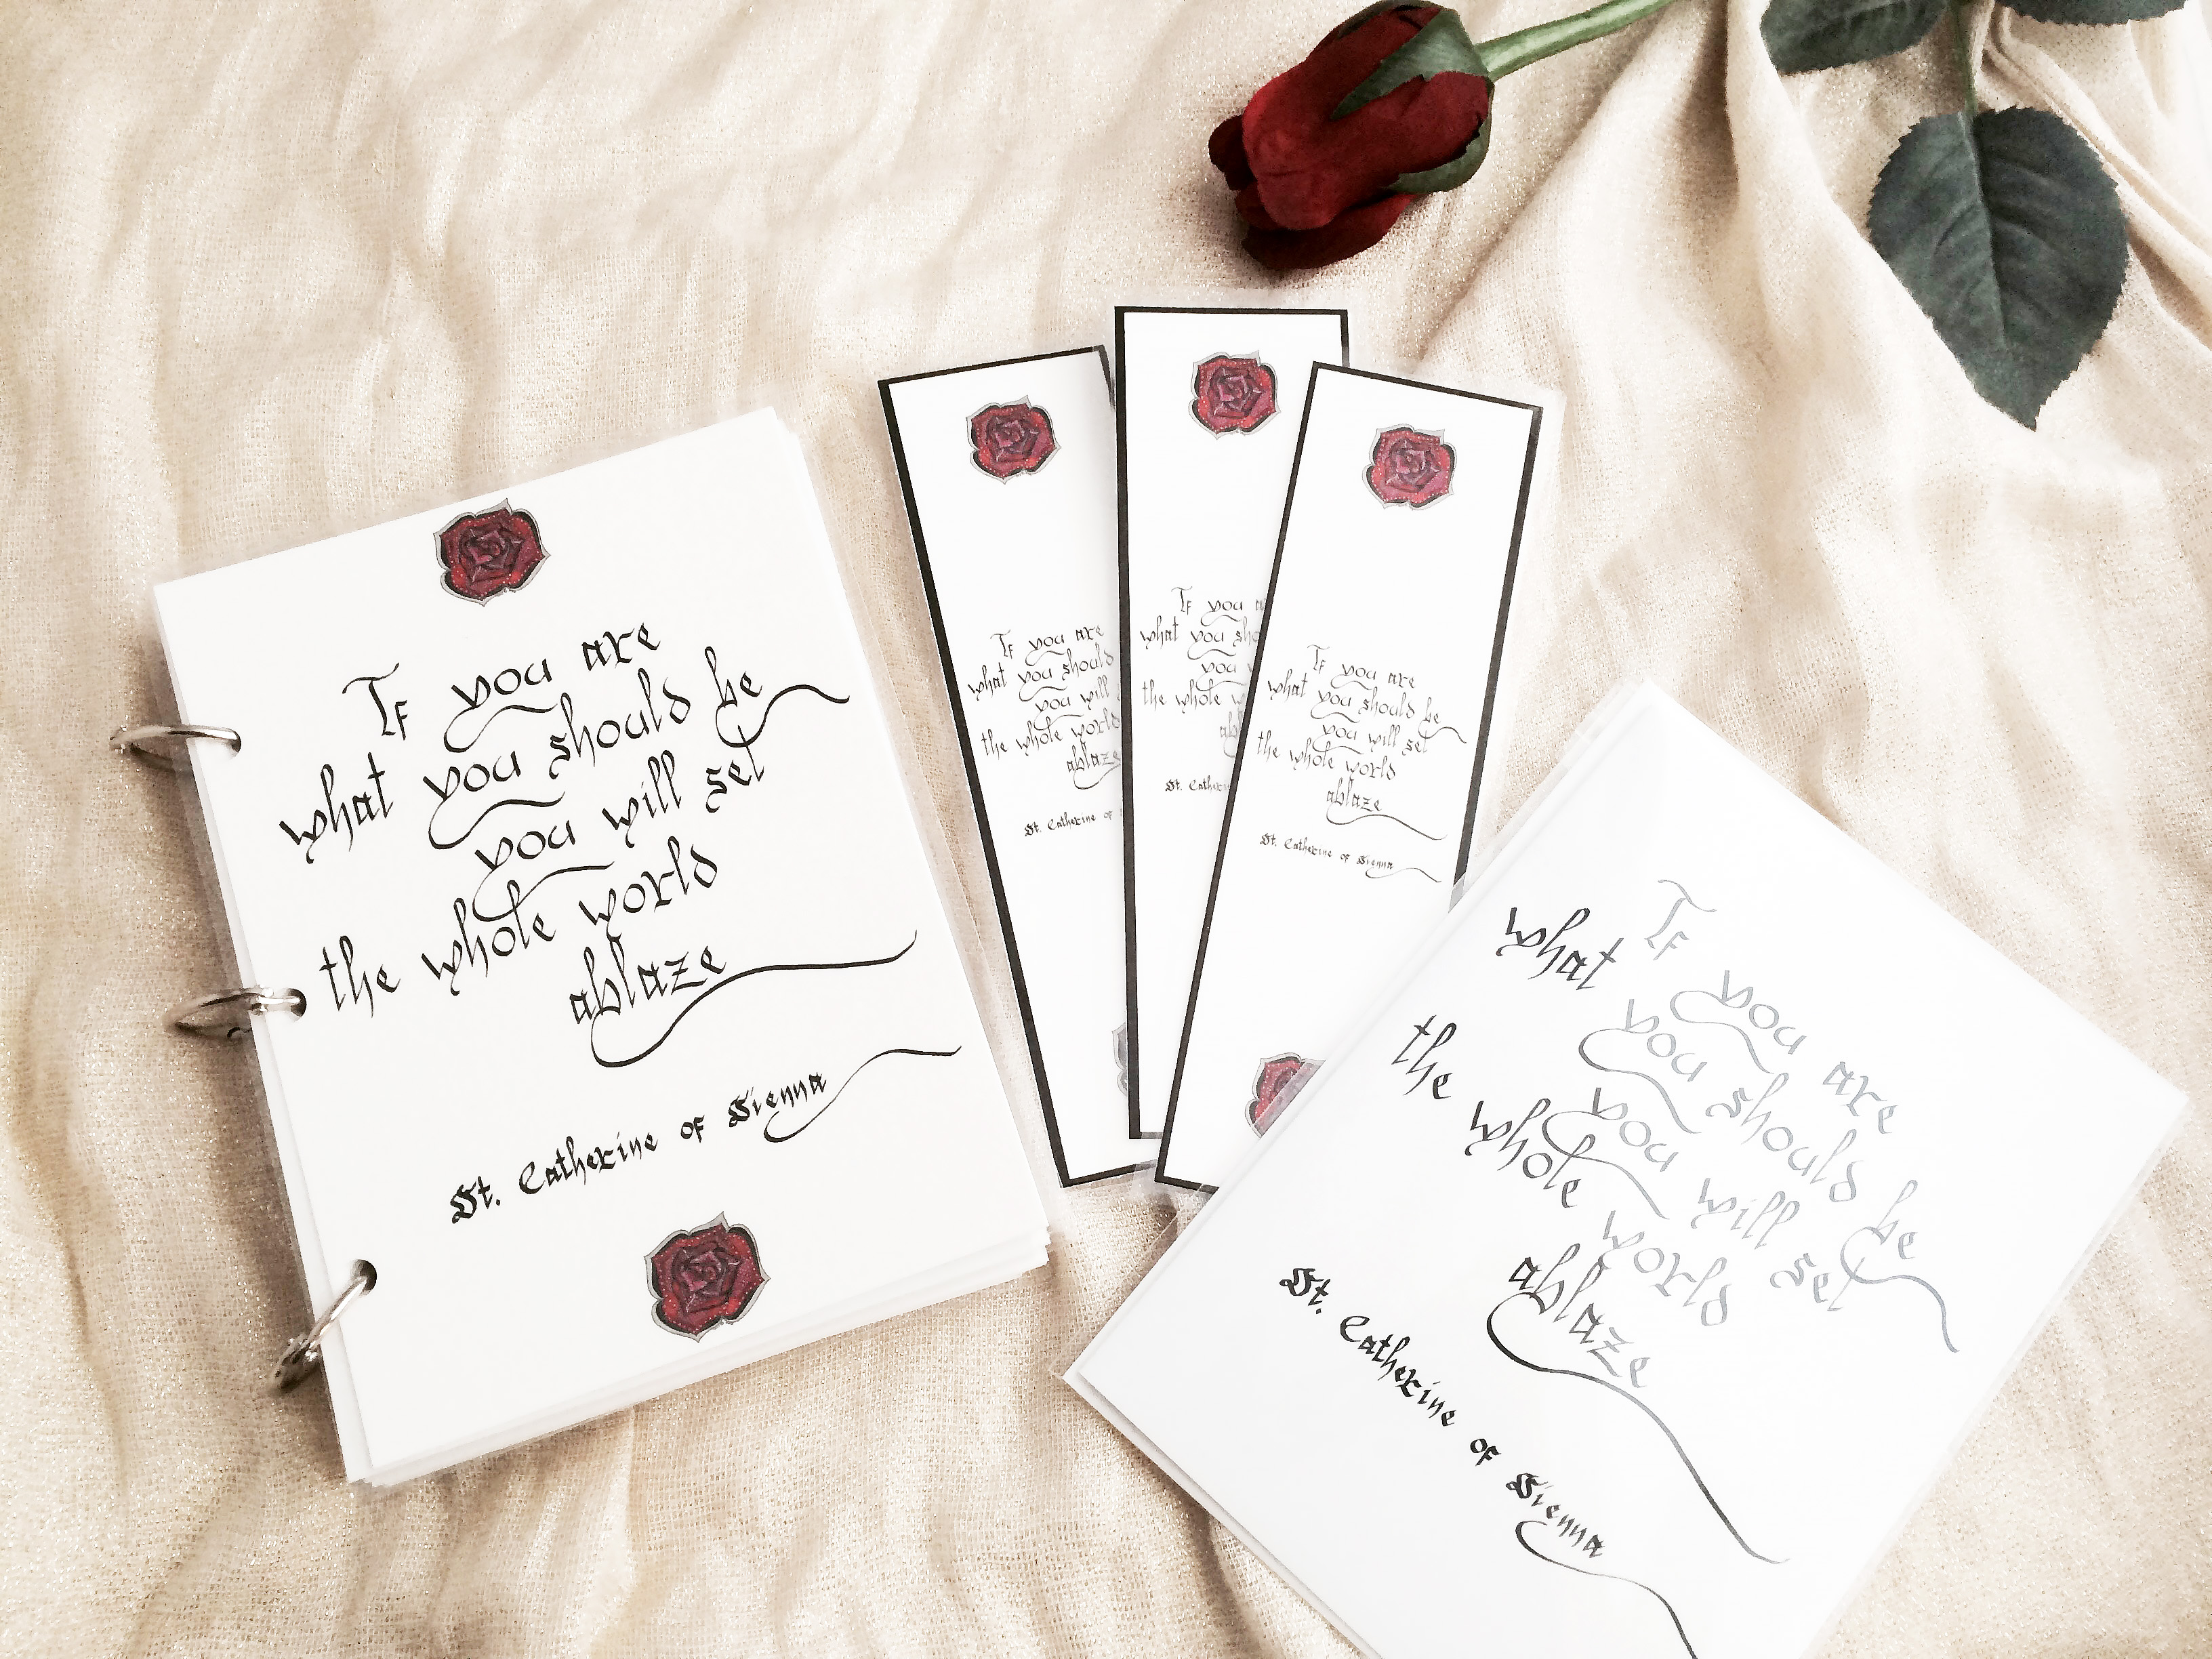 If you are
what you should be
you will set
the whole world
ablaze
St. Catherine of Sienna
If you are
what you should
you will
the whole world
ablaze
St. Catherine of
If you
what you sho
you
the whole
St. Catherine
If you are
what you should be
you will set
the whole world
ablaze
St. Catherine of Sienna
If you are
what you should be
you will set
the whole world
ablaze
St. Catherine of Sienna